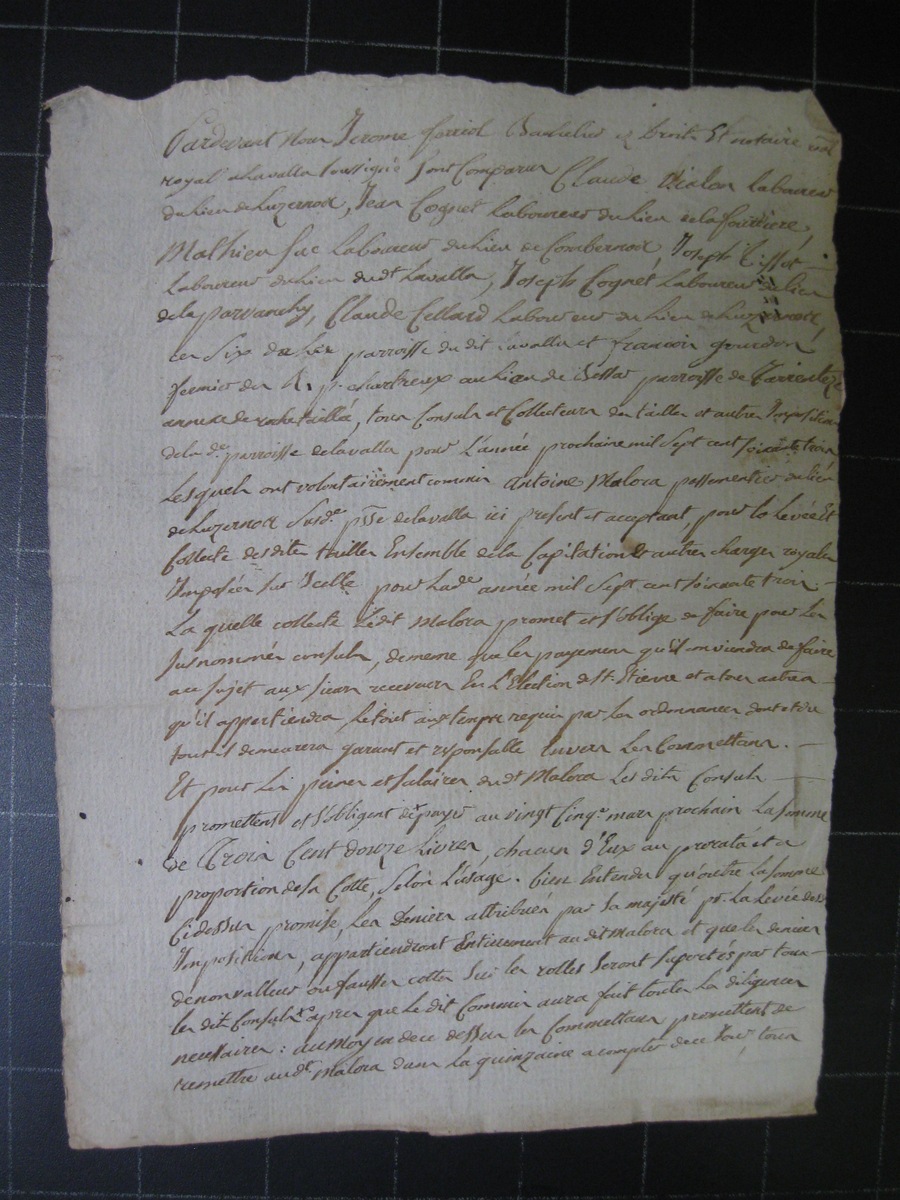 Pardevant Nous Jerome ferriol Bachelier es Droits Et notaire
royal a Lavalla soussigné sont Comparus Claude Laboureur
du lieu de Luzernod, Jean Cognet Laboureur du lieu de la
Mathieu Laboureur du lieu de Combernod, Joseph Tissot
Laboureur du lieu dudt Lavalla, Joseph Cognet Laboureur du lieu
de la parvanchy, Claude Cellard Laboureur du lieu de Luzernod,
ces Six de parroisse du dit Lavalla et francois gourdon
fermier des R. p. chartreux au lieu de parroisse de Tarrentaize
annexe de rochetaillé, tous Consuls et Collecteurs des tailles et autres Impositions
de la de. parroisse de lavalla pour L'année prochaine mil Sept cent soixante trois
Lesquels ont volontairement commis Antoine Matora passementier du lieu
de Luzernod Susde. psse de lavalla ici present et acceptant pour la Levée Et
Collecte desdites tailles Ensemble de la Capitation & autres charges royales
Imposées sur Icelle pour lade année mil Sept cent soixante trois.
La quelle collecte Ledit Matora promet et s'oblige de faire pour les
susnommés consuls, de meme que les payements qu'il conviendra de faire
au sujet aux sieurs receveurs En L'Election de St. Etienne et a tous autres
qu'il appartiendra, le tout aux temps requis par les ordonnances dont et de
tout il demeurera garant et responsable Envers Les Commettans.
Et pour les peines et salaires dudt Matora Les dits Consuls
promettent et s'obligent de payer au vingt Cinqe. mars prochain La somme
de Trois Cent douze Livres, chacun d'Eux au prorata et a
proportion de sa Cotte, selon L'usage. bien Entendu qu'outre La somme
Cidessus promise, Les Deniers attribués par sa majesté pr. La Levée des
Impositions, appartiendront Entierement audit Matora et que les deniers
de nonvalleurs ou fausses cottes sur les rolles seront suportés par tous
les dits Consuls apres que le dit Commis aura fait toutes les diligences
necessaires: au moyen de ce dessus les Commettans promettent de
remettre audt. Matora dans la quinzaine a compter de ce Jour, tous